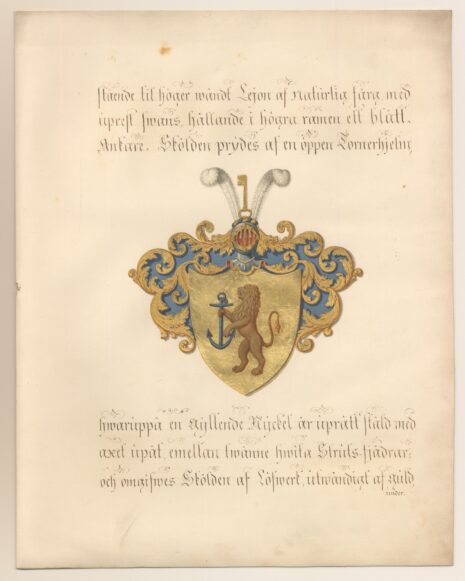 stående til höger wändt Lejon af Naturlig färg, med
uprest swans, hållande i högra ramen ett blått.
Ankare. Skölden prydes af en öppen Tornerhjelm,
hwaruppå en Gyllende Nyckel är uprätt stäld med
axet upåt, emellan twänne hwita Struts-fjädrar;
och omgifwes Skölden af Löfwerk, utwändigt af guld
under.